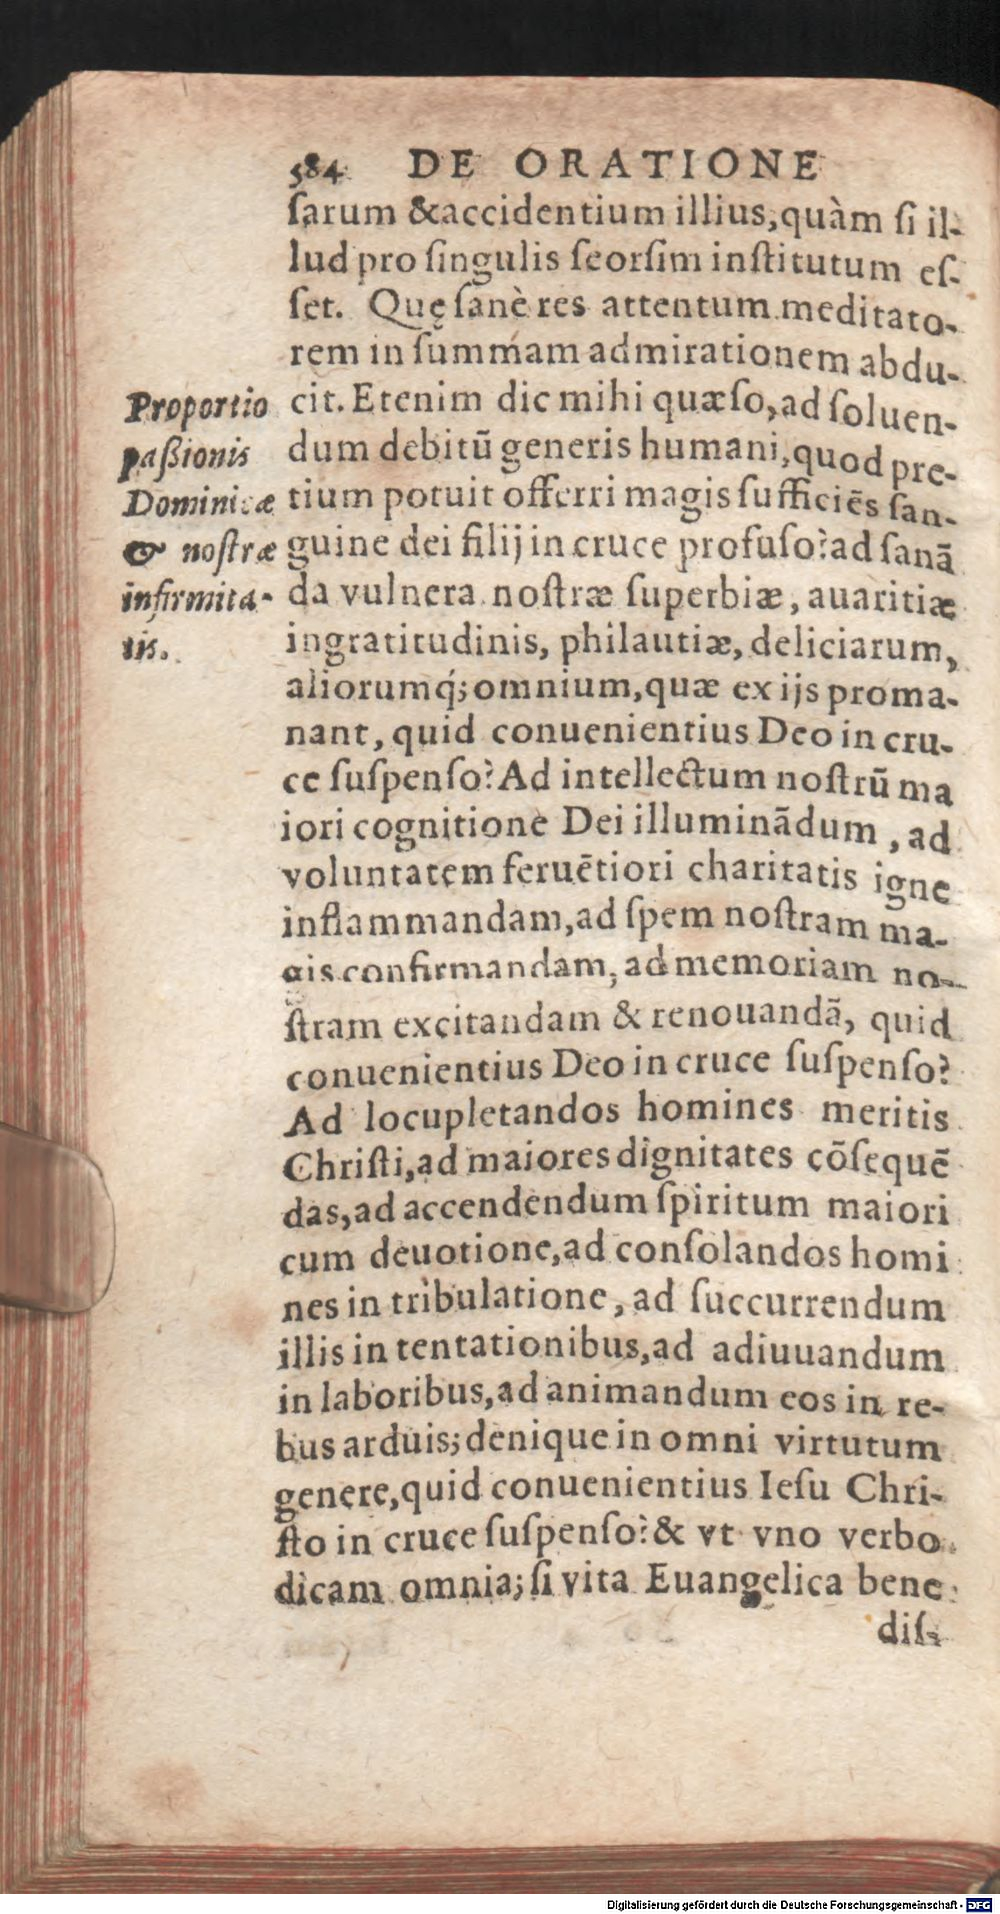 584 DE ORATIONE
ſarum &accidentium illius,quàm ſi il-
lud pro ſingulis ſeorſim inſtitutum eſ-
ſet. Quę ſanè res attentum meditato-
rem in ſummam admirationem abdu-
cit. Etenim dic mihi quæſo,ad ſoluen-
dum debitū generis humani,quod pre-
tium potuit offerri magis ſufficiēs ſan-
guine dei filij in cruce profuſo?ad ſanā
da vulnera noſtræ ſuperbiæ, auaritiæ
ingratitudinis, philautiæ, deliciarum,
aliorumq́;omnium,quæ ex ijs proma-
nant, quid conuenientius Deo in cru-
ce ſuſpenſo?Ad intellectum noſtrū ma
iori cognitione Dei illuminādum , ad
voluntatem feruētiori charitatis igne
inflammandam,ad ſpem noſtram ma-
gis confirmandam, ad memoriam no-
ſtram excitandam & renouandā, quid
conuenientius Deo in cruce ſuſpenſo?
Ad locupletandos homines meritis
Chriſti,ad maiores dignitates cōſequē
das,ad accendendum ſpiritum maiori
cum deuotione,ad conſolandos homi
nes in tribulatione, ad ſuccurrendum
illis in tentationibus,ad adiuuandum
in laboribus,ad animandum eos in re-
bus arduis;denique in omni virtutum
genere,quid conuenientius Ieſu Chri-
ſto in cruce ſuſpenſo?& vt vno verbo
dicam omnia;ſi vita Euangelica bene
diſ-
Proportio
paßionis
Dominicæ
& noſtræ
infirmita-
tis.
Digitalisierung gefördert durch die Deutsche Forschungsgemeinschaft - DFG